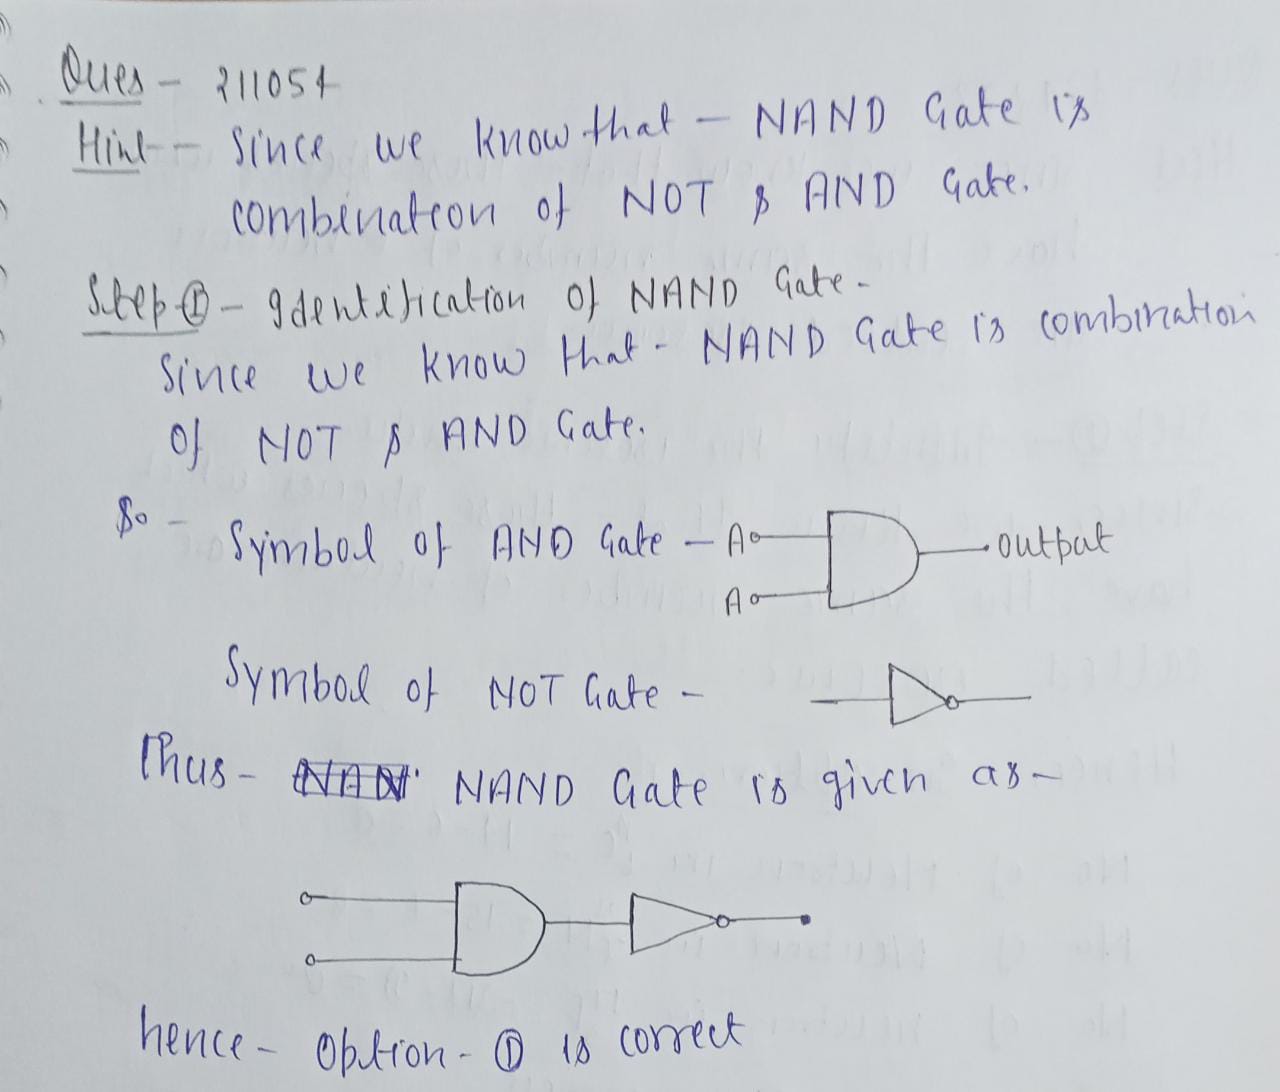 Ques - 211054
Hint - Since we know that - NAND Gate is
combination of NOT & AND Gate.
Step ① - Identification of NAND Gate -
Since we know that - NAND Gate is combination
of NOT & AND Gate.
So - Symbol of AND Gate - A output
A
Symbol of NOT Gate -
Thus - NAND Gate is given as -
hence - Option - ① is correct